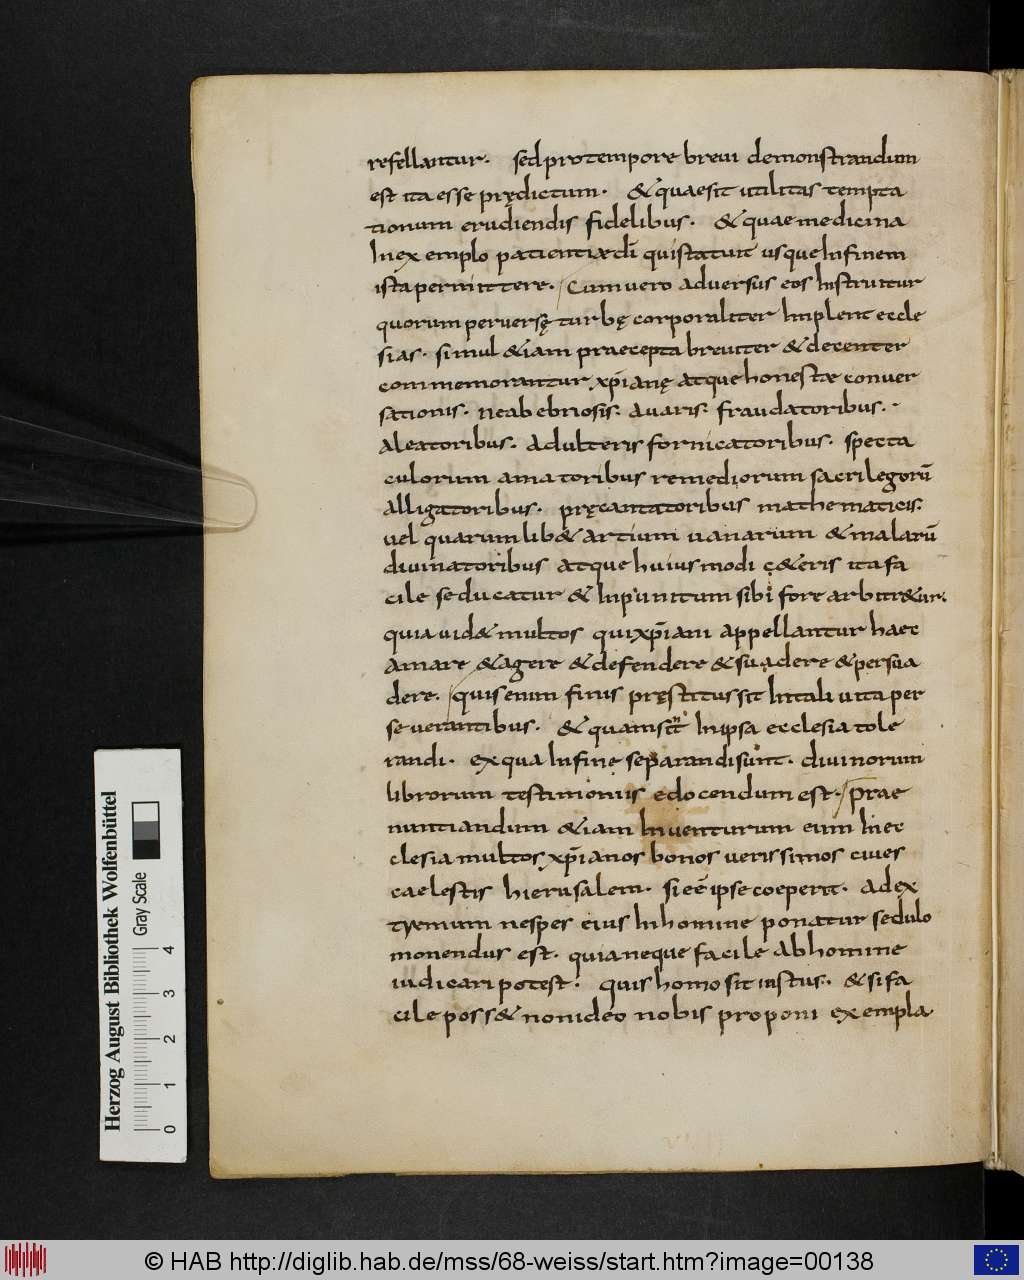 refellantur. sed pro tempore brevi demonstrandum
est ita esse prędictum. & quae sit utilitas tempta
tionum erudiendis fidelibus. & quae medicina
In exemplo patientiae dī qui statuit usque In finem
ista permittere. Cum vero adversus eos Instruitur
quorum perversę turbę corporaliter Implent eccle
sias. simul & iam praecepta breviter & decenter
commemorantur xp̄ianę atque honestae conver
sationis. ne ab ebriosis. avaris. fraudatoribus.
aleatoribus. adulteris fornicatoribus. specta
culorum amatoribus remediorum sacrilegorū
alligatoribus. pręcantatoribus mathematicis.
vel quarumlib& artium vanarum & malarū
divinatoribus atque huiusmodi c&eris ita fa
cile seducatur & Inpunitum sibi fore arbitr&ur.
quia uid& multos qui xp̄iani appellantur haec
amare & agere & defendere & suadere & persua
dere. quis enim finis pręstitus sit In tali vita per
severantibus. & quam sint In ipsa ecclesia tole
randi. ex qua In fine separandi sunt. divinorum
librorum testimoniis edocendum est. prae
nuntiandum & iam Inventurum eum In ec
clesia multos xp̄ianos bonos verissimos cives
caelestis hierusalem. si eē ipse coeperit. ad ex
tremum ne spes eius In homine ponatur sedulo
monendus est. quia neque facile ab homine
iudicari potest. quis homo sit iustus. & si fa
cile poss& non ideo nobis proponi exempla
Herzog August Bibliothek Wolfenbüttel
Gray Scale
0 1 2 3 4
© HAB http://diglib.hab.de/mss/68-weiss/start.htm?image=00138